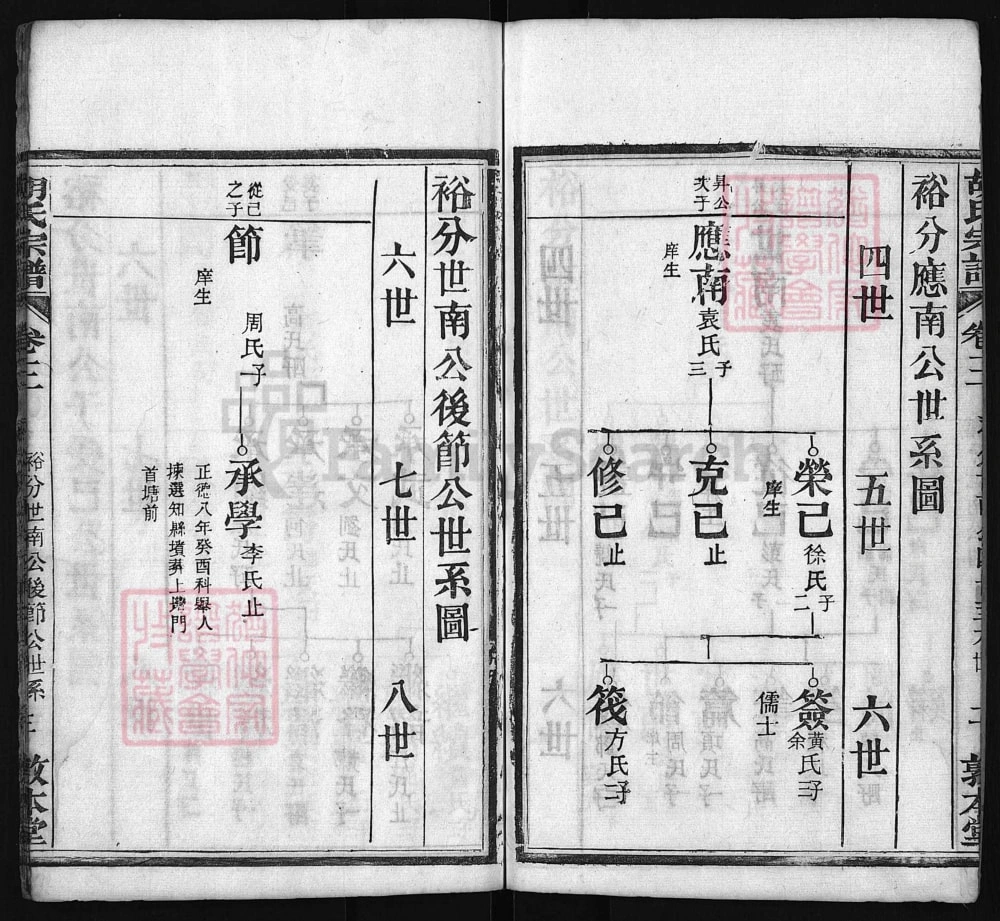 裕分應南公世系圖
四世
五世
六世
昇公
次子
應南
庠生
袁氏
子三
榮己
庠生
徐氏
子二
克己
止
修己
止
簽
儒士
黃氏
余
子
筏
方氏
子
胡氏宗譜
卷三
二
敦本堂
裕分世南公後節公世系圖
六世
七世
八世
從己
之子
節
庠生
周氏
子
承學
李氏
止
正德八年癸酉科舉人
揀選知縣墳葬上門
首塘前
胡氏宗譜
卷三
裕分世南公後節公世系
敦本堂
FamilySearch